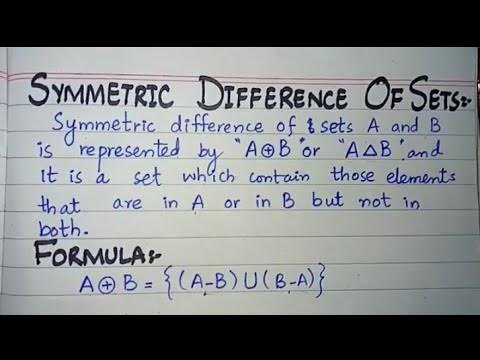 SYMMETRIC DIFFERENCE OF SETS:-
Symmetric difference of sets A and B
is represented by "A⊕B" or "A△B" and
It is a set which contain those elements
that are in A or in B but not in
both.
FORMULA:-
A⊕B = {(A-B)∪(B-A)}